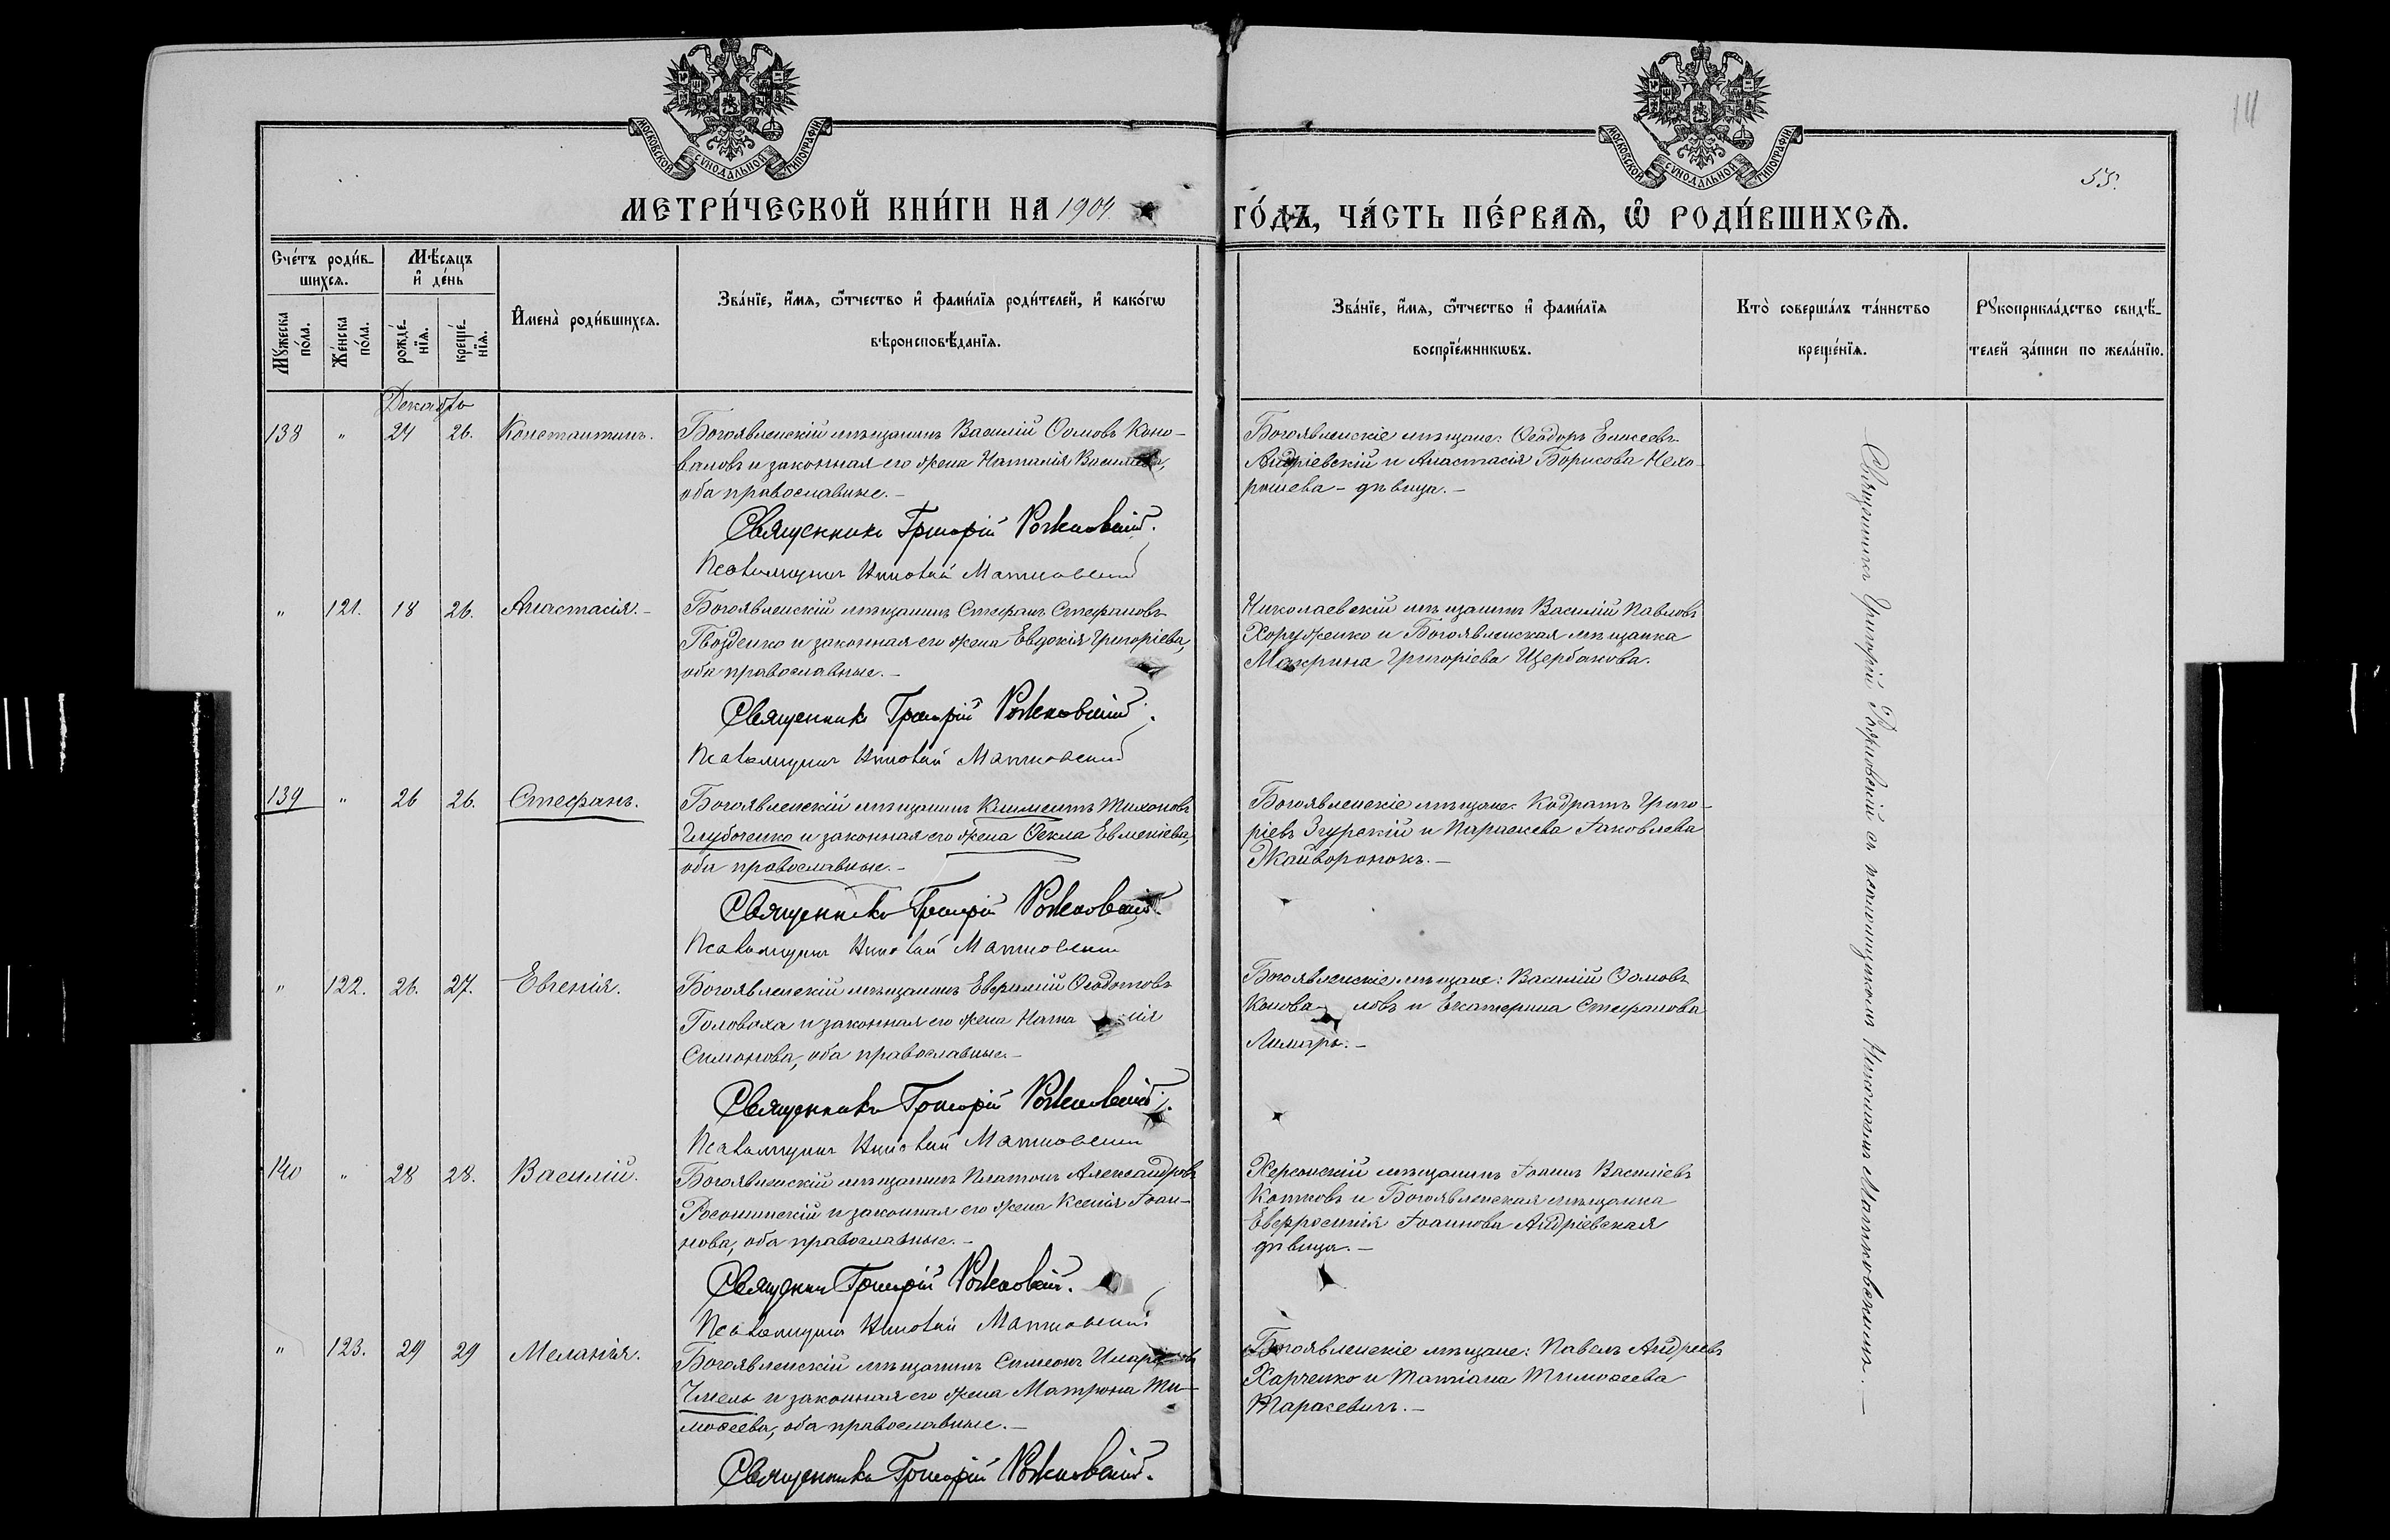 МОСКОВСКОЙ СѴНОДАЛЬНОЙ ТИПОГРАФІИ
МОСКОВСКОЙ СѴНОДАЛЬНОЙ ТИПОГРАФІИ
111
55.
МЕТРИ́ЧЕСКОЙ КНИ́ГИ НА 1904.
ГО́ДЪ, ЧА́СТЬ ПЕ́РВАѦ, Ѽ РОДИ́ВШИХСѦ.
Сче́тъ роди́в-
шихсѧ.
Мѣ́сѧцъ
и҆ де́нь
Мꙋ́жеска
по́ла.
Же́нска
по́ла.
рожде́-
нїѧ.
креще́-
нїѧ.
И҆мена̀ роди́вшихсѧ.
Зва́нїе, и҆́мѧ, ѻ҆́тчество и҆ фами́лїѧ роди́телей, и҆ како́гѡ
вѣроисповѣ́данїѧ.
Зва́нїе, и҆́мѧ, ѻ҆́тчество и҆ фами́лїѧ
воспрїе́мникѡвъ.
Кто̀ соверша́лъ та́инство
креще́нїѧ.
Рꙋкоприкла́дство свидѣ́-
телей за́писи по жела́нїю.
Декабрь
138 " 24 26. Константинъ.
Богоявленскій мѣщанинъ Василій Ѳомовъ Коно-
валовъ и законная его жена Наталія Василіева,
оба православные.-
Священникъ Григорій Рожковскій.
Псаломщикъ Николай Матковскій
Богоявленскіе мѣщане: Ѳеодоръ Елисеевъ
Андріевскій и Анастасія Борисова Нехо-
рошева - дѣвица.-
" 121. 18 26. Анастасія.-
Богоявленскій мѣщанинъ Стефанъ Стефановъ
Гвозденко и законная его жена Евдокія Григоріева,
оба православные.-
Священникъ Григорій Рожковскій.
Псаломщикъ Николай Матковскій
Николаевскій мѣщанинъ Василій Павловъ
Хоруженко и Богоявленская мѣщанка
Макрина Григоріева Щербакова.
139 " 26 26. Стефанъ.
Богоявленскій мѣщанинъ Климентъ Тихоновъ
Глубоченко и законная его жена Ѳекла Евменіева,
оба православные.-
Священникъ Григорій Рожковскій.
Псаломщикъ Николай Матковскій
Богоявленскіе мѣщане: Кодратъ Григо-
ріевъ Згурскій и Параскева Іаковлева
Жайворонокъ.-
" 122. 26. 27. Евгенія.
Богоявленскій мѣщанинъ Евфимій Ѳеодотовъ
Головаха и законная его жена Ната лія
Симонова, оба православные.-
Священникъ Григорій Рожковскій.
Псаломщикъ Николай Матковскій
Богоявленскіе мѣщане: Василій Ѳомовъ
Конова ловъ и Екатерина Стефанова
Лимарь.-
140 " 28 28. Василій.
Богоявленскій мѣщанинъ Платонъ Александровъ
и законная его жена Ксенія Іоан-
нова, оба православные.-
Священникъ Григорій Рожковскій.
Псаломщикъ Николай Матковскій
Херсонскій мѣщанинъ Іоаннъ Василіевъ
Котковъ и Богоявленская мѣщанка
Евфросинія Іоаннова Андріевская
дѣвица.-
" 123. 29 29 Меланія.
Богоявленскій мѣщанинъ Симеонъ
Чмель и законная его жена Матрона Ти-
моѳеева, оба православные.-
Священникъ Григорій Рожковскій.
Богоявленскіе мѣщане: Павелъ Андреевъ
Харченко и Татіана Тимоѳеева
Тарасевичъ.-
Священникъ Григорій Рожковскій съ псаломщикомъ Николаемъ Матковскимъ.-